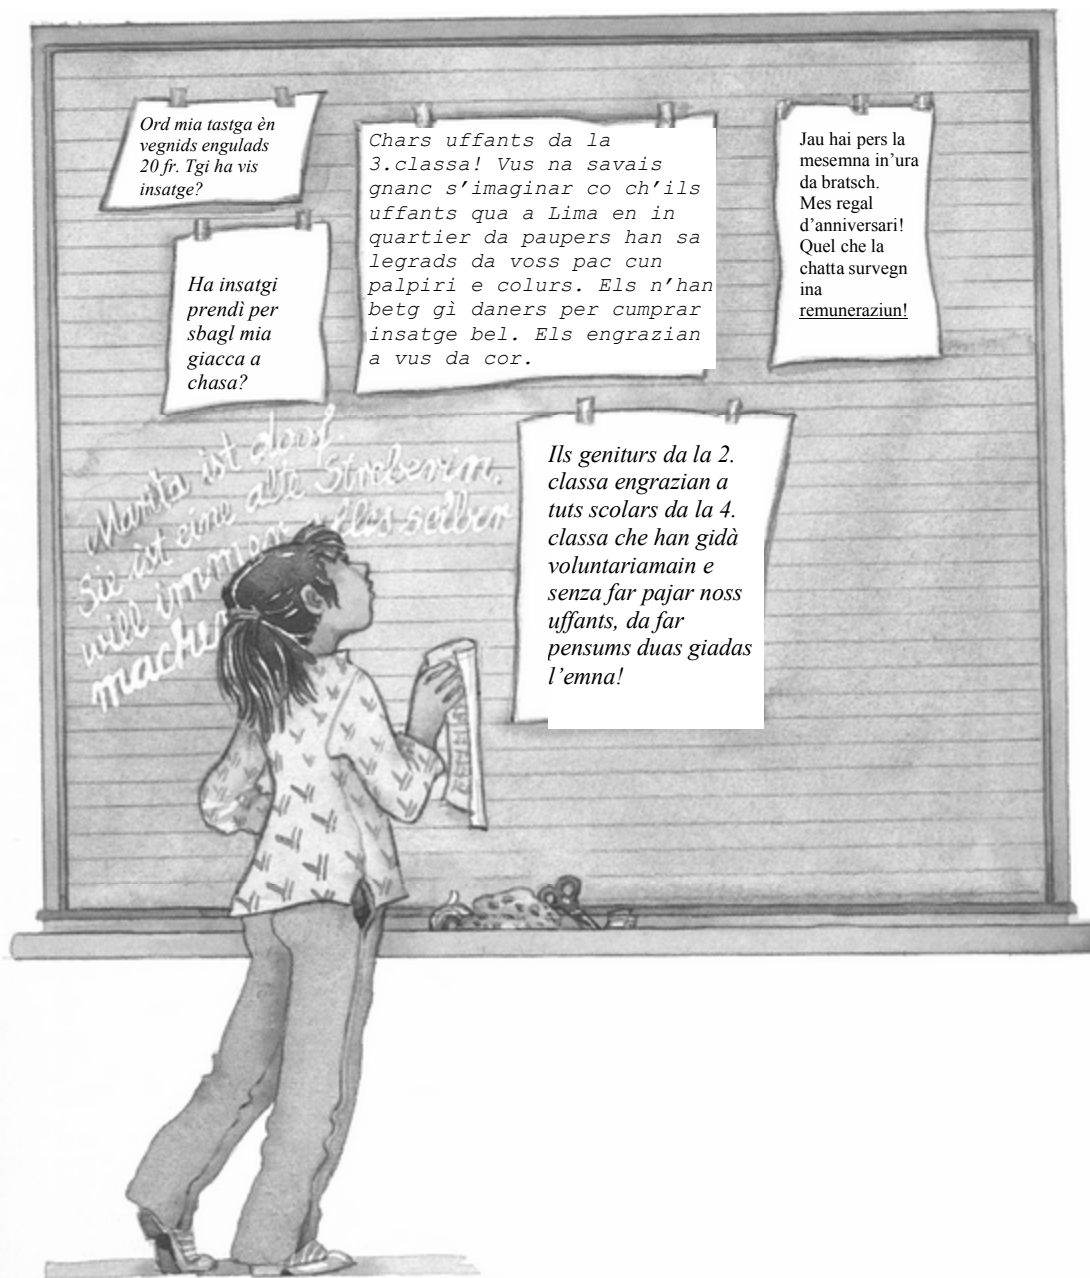 Ord mia tastga èn
vegnids engulads
20 fr. Tgi ha vis
insatge?
Chars uffants da la
3.classa! Vus na savais
gnanc s'imaginar co ch'ils
uffants qua a Lima en in
quartier da paupers han sa
legrads da voss pac cun
palpiri e colurs. Els n'han
betg gì daners per cumprar
insatge bel. Els engrazian
a vus da cor.
Jau hai pers la
mesemna in'ura
da bratsch.
Mes regal
d'anniversari!
Quel che la
chatta survegn
ina
remuneraziun!
Ha insatgi
prendì per
sbagl mia
giacca a
chasa?
Ils geniturs da la 2.
classa engrazian a
tuts scolars da la 4.
classa che han gidà
voluntariamain e
senza far pajar noss
uffants, da far
pensums duas giadas
l'emna!
ist doof.
Sie ist eine alte Streberin,
will immer alles selber
machen